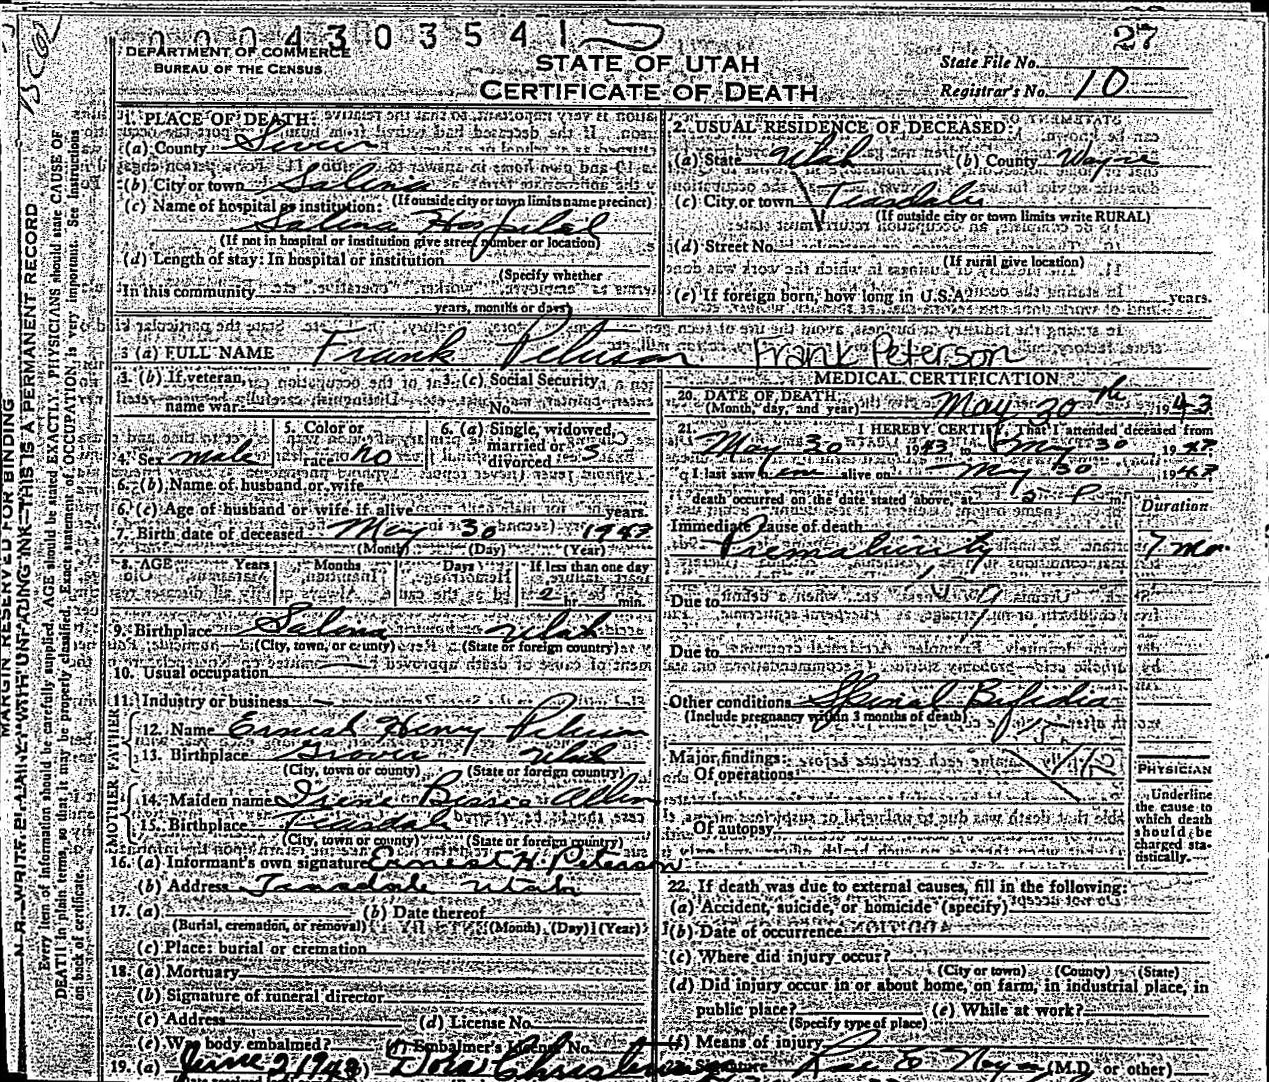 0 0 0 4 3 0 3 5 4 1
27
DEPARTMENT OF COMMERCE
BUREAU OF THE CENSUS
STATE OF UTAH
CERTIFICATE OF DEATH
State File No.
Registrar's No. 10
MARGIN RESERVED FOR BINDING
N. B. WRITE PLAINLY WITH UNFADING INK—THIS IS A PERMANENT RECORD
Every item of information should be carefully supplied. AGE should be stated EXACTLY. PHYSICIANS should state CAUSE OF
DEATH in plain terms, so that it may be properly classified. Exact statement of OCCUPATION is very important. See instructions
on back of certificate.
1. PLACE OF DEATH:
(a) County Sevier
(b) City or town Salina
(If outside city or town limits name precinct)
(c) Name of hospital or institution:
Salina Hospital
(If not in hospital or institution give street number or location)
(d) Length of stay: In hospital or institution
(Specify whether
In this community
years, months or days)
2. USUAL RESIDENCE OF DECEASED:
(a) State Utah (b) County Wayne
(c) City or town Teasdale
(If outside city or town limits write RURAL)
(d) Street No.
(If rural give location)
(e) If foreign born, how long in U.S.A. years.
3 (a) FULL NAME Frank Peterson Frank Peterson
3. (b) If veteran, name war
3. (c) Social Security No.
4. Sex male
5. Color or race
6. (a) Single, widowed, married or divorced S
6. (b) Name of husband or wife
6. (c) Age of husband or wife if alive years
7. Birth date of deceased May 30 1943
(Month) (Day) (Year)
8. AGE Years Months Days If less than one day
2 hr. min.
9. Birthplace Salina Utah
(City, town, or county) (State or foreign country)
10. Usual occupation
11. Industry or business
FATHER
12. Name Ernest Henry Peterson
13. Birthplace Grover Utah
(City, town or county) (State or foreign country)
MOTHER
14. Maiden name Irene Bessie Allen
15. Birthplace Teasdale
(City, town or county) (State or foreign country)
16. (a) Informant's own signature Ernest H. Peterson
(b) Address Teasdale Utah
17. (a) (b) Date thereof
(Burial, cremation, or removal) (Month) (Day) (Year)
(c) Place: burial or cremation
18. (a) Mortuary
(b) Signature of funeral director
(c) Address (d) License No.
(e) Was body embalmed? (f) Embalmer's License No.
19. (a) June 2 1943 Dora Christensen
MEDICAL CERTIFICATION
20. DATE OF DEATH May 30th 1943
(Month, day, and year)
21. I HEREBY CERTIFY, That I attended deceased from
May 30 1943 to May 30 1943
I last saw him alive on May 30 1943
death occurred on the date stated above, at P m.
Duration
Immediate cause of death
Prematurity 7 mo.
Due to
Due to
Other conditions Spinal Bifidia
(Include pregnancy within 3 months of death)
Major findings:
Of operations
Of autopsy
PHYSICIAN
Underline
the cause to
which death
should be
charged sta-
tistically.
22. If death was due to external causes, fill in the following:
(a) Accident, suicide, or homicide (specify)
(b) Date of occurrence
(c) Where did injury occur?
(City or town) (County) (State)
(d) Did injury occur in or about home, on farm, in industrial place, in
public place? (e) While at work?
(Specify type of place)
(f) Means of injury
23. Signature Rae E. Noyes (M.D. or other)